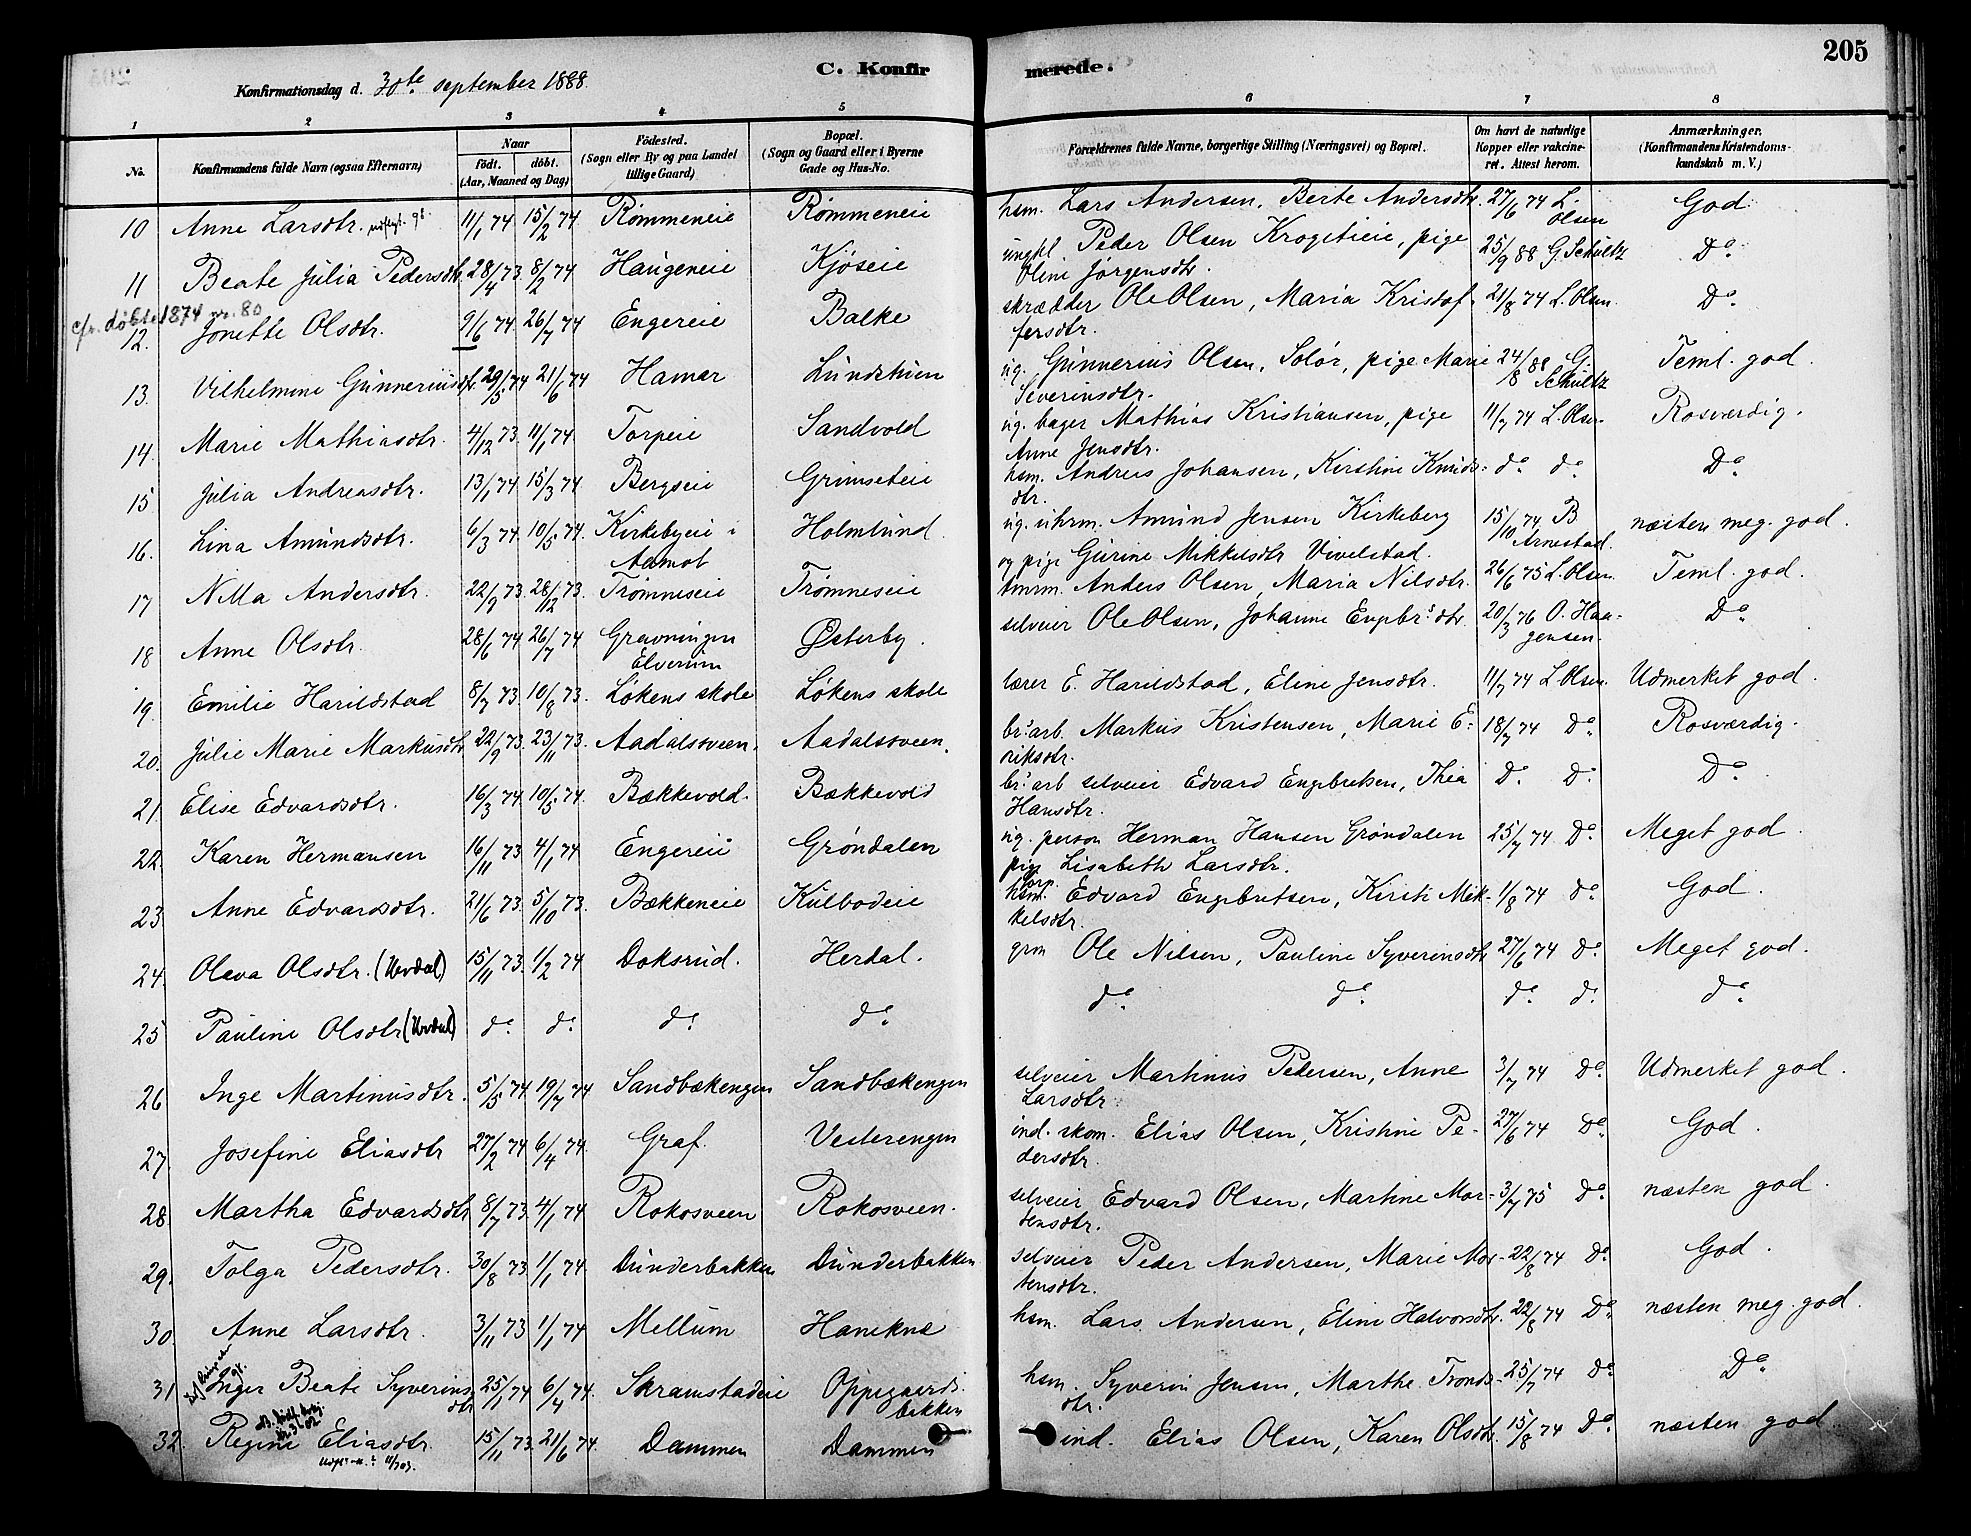 205
C. Konfirmerede.
Konfirmationsdag d. 30te september 1888.
1 2 3 4 5 6 7 8
No. Konfirmandens fulde Navn (ogsaa Efternavn) Naar født. døbt. (Aar, Maaned og Dag) Födested. (Sogn eller By og paa Landet tillige Gaard) Bopæl. (Sogn og Gaard eller i Byerne Gade og Hus-No. Forældrenes fulde Navne, borgerlige Stilling (Næringsvei) og Bopæl. Om havt de naturlige Kopper eller vaccineret. Attest herom. Anmærkninger. (Konfirmandens Kristendomskundskab m. V.)
10 Anne Larsdtr. 11/1 74 15/2 74 Rømmeneie Rømmeneie hsm. Lars Andersen, Berte Andersdtr. 27/6 74 L. Olsen God
11 Beate Julia Pedersdtr. 28/4 73. 8/2 74 Haugeneie Kjøseie ungkl. Peder Olsen Krogstieie, pige Oline Jørgensdtr. 25/9 88 G. Schultz Do.
cfr. døbte 1874 nr. 80
12. Jonette Olsdtr. 9/6 74 26/7 74 Engereie Balke skrædder Ole Olsen, Maria Kristoffersdtr. 21/8 74 L. Olsen. Do.
13. Vilhelmine Gunneriusdtr. 29/5 74 21/6 74 Hamar Lundstuen ug. Gunnerius Olsen, Solør, pige Marie Severinsdtr. 24/8 88 G. Schultz Teml. god.
14. Marie Mathiasdtr. 4/12 73 11/1 74 Torpeie Sandvold ug. bager Mathias Kristiansen, pige Anne Jensdtr. 11/7 74 L. Olsen Rosværdig.
15 Julia Andreasdtr. 13/1 74 15/3 74 Bergseie Grimseteie hsm. Andreas Johansen, Kirstine Knudsdtr. do. do. Do
16. Lina Amundsdtr. 6/3 74. 10/5 74. Kirkebyeie i Aamot Holmlund. ug. uhrm. Amund Jensen Kirkeberg og pige Gurine Mikkelsdtr Vivelstad. 15/10 74 B Arnestad. næsten meg. god.
17 Nilla Andersdtr. 22/9 73. 28/12 73. Trømneseie Trømneseie tmrm. Anders Olsen, Maria Nilsdtr. 26/6 75 L. Olsen. Teml. god.
18 Anne Olsdtr. 28/6 74 26/7 74 Gravningen Elverum Østerby. selveier Ole Olsen, Johanne Engbrs.dtr. 20/3 76 O. Haagensen. Do
19. Emilie Harildstad 8/7 73. 10/8 73. Løkens skole Løkens skole lærer E. Harildstad, Eline Jensdtr. 11/7 74 L. Olsen. Udmerket god.
20. Julie Marie Markusdtr 22/9 73. 23/11 73. Aadalsveen. Aadalsveen. br. arb. Markus Kristensen, Marie Eriksdtr. 18/7 74 Do. Rosværdig.
21. Elise Edvardsdtr. 16/3 74 10/5 74 Bækkevold. Bækkevold br. arb selveier Edvard Engebretsen, Thea Hansdtr. Do. Do. Do.
22. Karen Hermansen 16/11 73 4/1 74 Engereie Grøndalen ug. person Herman Hansen Grøndalen pige Lisabeth Larsdtr. 25/7 74 Do. Meget god.
23. Anne Edvardsdtr. 21/6 73. 5/10 73. Bækkeneie Kulbodeie hsm. Edvard Engebretsen, Kirsti Mikkelsdtr. 1/8 74 do. God.
24. Olava Olsdtr. 15/11 73. 1/2 74 Doksrud. Herdal. grm Ole Nilsen, Pauline Syverinsdtr 27/6 74 Do. Meget god.
25 Pauline Olsdtr do. do. do. do. do. do. do. do. do.
26 Inge Martinusdtr. 5/5 74 19/7 74 Sandbækengen Sandbækengen selveier Martinus Pedersen, Anne Larsdtr. 3/7 74 Do. Udmerket god.
27. Josefine Eliasdtr 27/2 74 6/4 74. Graf. Vesterengen ind. skom. Elias Olsen, Kristine Pedersdtr. 27/6 74 Do. God.
28. Martha Edvardsdtr 8/7 73. 4/1 74 Rokosveen Rokosveen. selveier Edvard Olsen, Martine Mortensdtr. 3/7 75 Do. næsten god.
29. Tolga Pedersdtr. 30/8 73. 1/1 74 Dunderbakken Dunderbakken selveier Peder Andersen, Marie Mortensdtr. 22/8 74 Do God.
30. Anne Larsdtr. 3/11 73 1/1 74 Mellum Hanekne hsm. Lars Andersen, Eline Halvorsdtr. 22/8 74 Do næsten meg. god.
31. Inger Beate Syverinsdtr 25/1 74 6/4 74. Skramstadeie Oppegaardsbakken hsm. Syverin Jensen, Marthe Trondsdtr. 25/7 74 Do. Do.
32. Regine Eliasdtr. 15/11 73. 21/6 74. Dammen Dammen ind. Elias Olsen, Karen Olsdtr. 15/8 74 Do. næsten god.